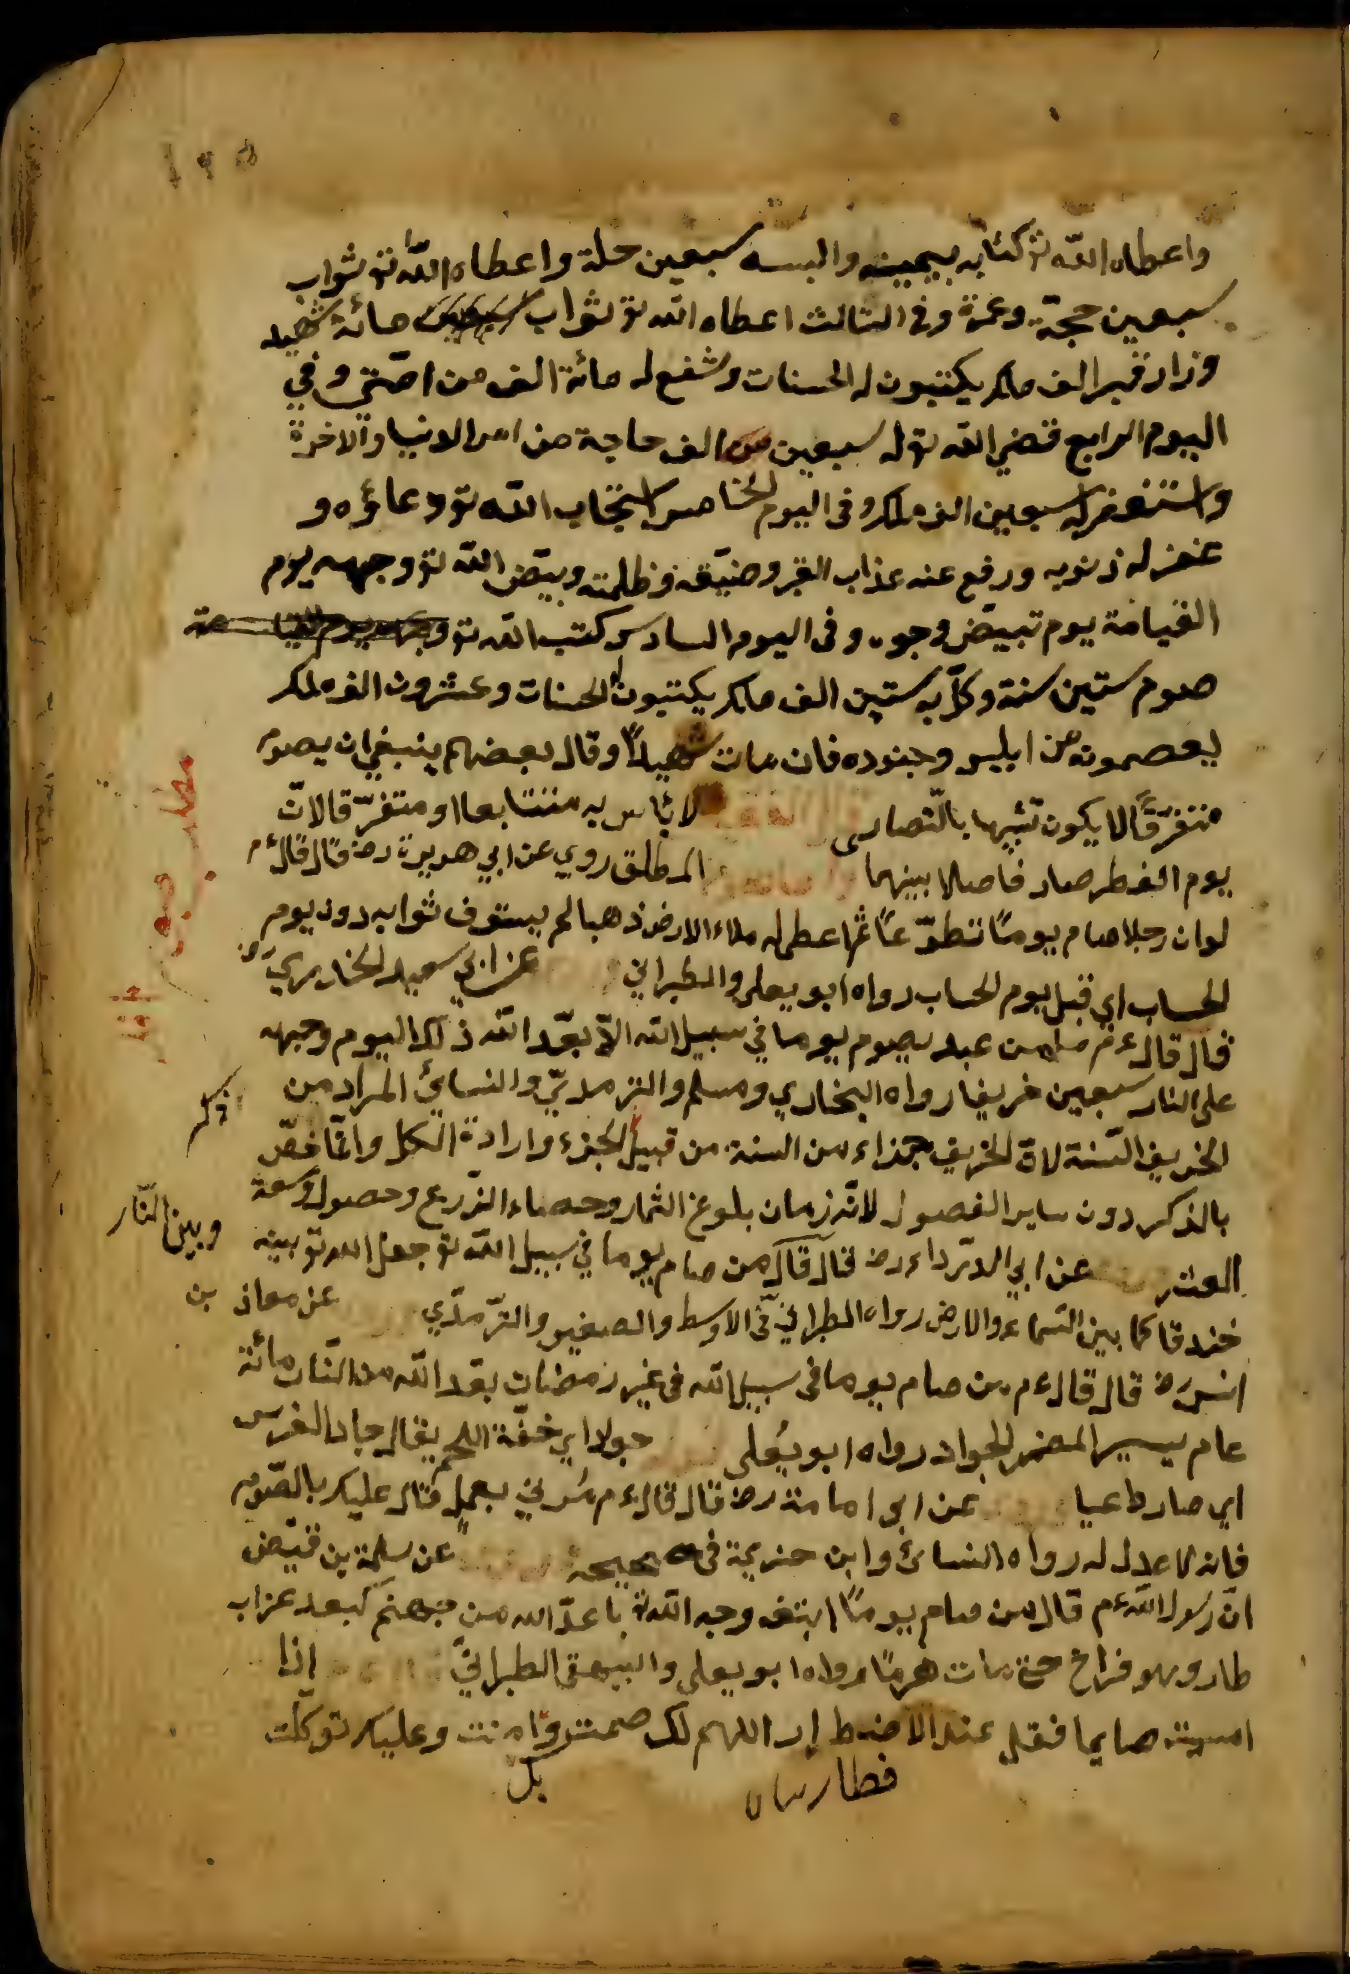 واعطاه الله تو كتابه بيمينه والبسه سبعين حلة واعطاه الله تو ثواب
سبعين حجة وعمرة وفى الثالث اعطاه الله تو ثواب مائة شهيد
وزار قبره الف ملك يكتبون له الحسنات وشفع له مائة الف من امتى وفي
اليوم الرابع قضي الله تو له سبعين الف حاجة من امر الدنيا والاخرة
واستغفر له سبعين الف ملك وفى اليوم الخامس استجاب الله تو دعاؤه و
غفر له ذنوبه ورفع عنه عذاب القبر وضيقه وظلمته وبيّض الله تو وجهه يوم
القيامة يوم تبيضّ وجوه وفى اليوم السادس كتب الله تو
صوم ستين سنة وكّل به ستين الف ملك يكتبون له الحسنات وعشرون الف ملك
يعصمونه من ابليس وجنوده فان مات شهيدًا وقال بعضهم ينبغي ان يصوم
متفرّقًا لا يكون تشبيها بالنّصارى لا بأس به متتابعا او متفرّقا لانّ
يوم الفطر صار فاصلا بينهما المطلق روي عن ابي هريرة رض قال قال ءم
لو ان رجلا صام يومًا تطوّعًا ثم اعطى له ملاء الارض ذهبا لم يستوف ثوابه دون يوم
الحساب اي قبل يوم الحساب رواه ابو يعلى والطبراني عن ابي سعيد الخدري رض
قال قال ءم ما من عبد يصوم يوما في سبيل الله الاّ بعّد الله ذلك اليوم وجهه
على النار سبعين خريفا رواه البخاري ومسلم والترمديّ والنسائ المراد من
ذكر
الخريف السّنة لانّ الخريف جزاء من السنة من قبيل الجزء وارادة الكل وانّما خصّ
بالذكر دون ساير الفصول لانّه زمان بلوغ الثمار وحصاد الزّرع وحصول وسعة
العشر عن ابي الدّرداء رض قال قال من صام يوما في سبيل الله تو جعل الله تو بينه
وبين النّار
خندقا كما بين السّماء والارض رواه الطبراني فى الاوسط والصغير والترّمدّي عن معاذ بن
انس رض قال قال ءم من صام يوما فى سبيل الله فى غير رمضان بعّد الله من النّار مائة
عام يسير المضمر الجواد رواه ابو يعلى جولا اي خفّة اللحم يقال جاد الفرس
اي صار عن ابي امامة رض قال قال ءم مُرني بعمل قال عليك بالصّوم
فانه لا عدل له رواه النسائ وابن حزيمة فى صحيحه عن سلمة بن قيض
انّ رسول الله ءم قال من صام يومًا ابتغى وجه الله تو باعدّ الله من جهنّم كبعد غراب
طار وهو فراخ حتى مات هرمًا رواه ابو يعلى والبيهقى الطبرانيّ اذا
امسيت صايما فقل عند الافطار اللهم لك صمت وامنت وعليك توكلّت
بك